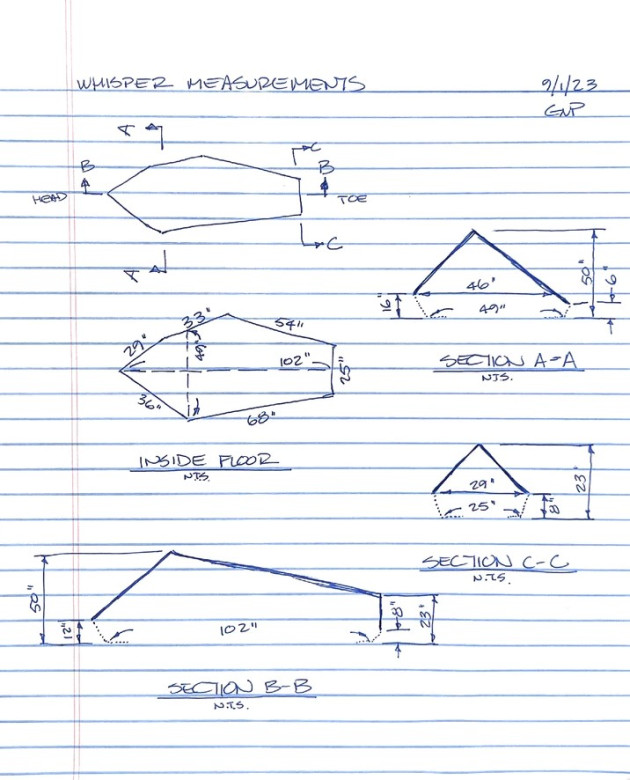 WHISPER MEASUREMENTS
9/1/23
GNP
A
C
B
B
HEAD
TOE
A
C
46"
49"
16"
50"
6"
SECTION A-A
N.T.S.
29"
33"
54"
49"
102"
25"
36"
68"
INSIDE FLOOR
N.T.S.
29"
25"
8"
23"
SECTION C-C
N.T.S.
50"
12"
102"
8"
23"
SECTION B-B
N.T.S.